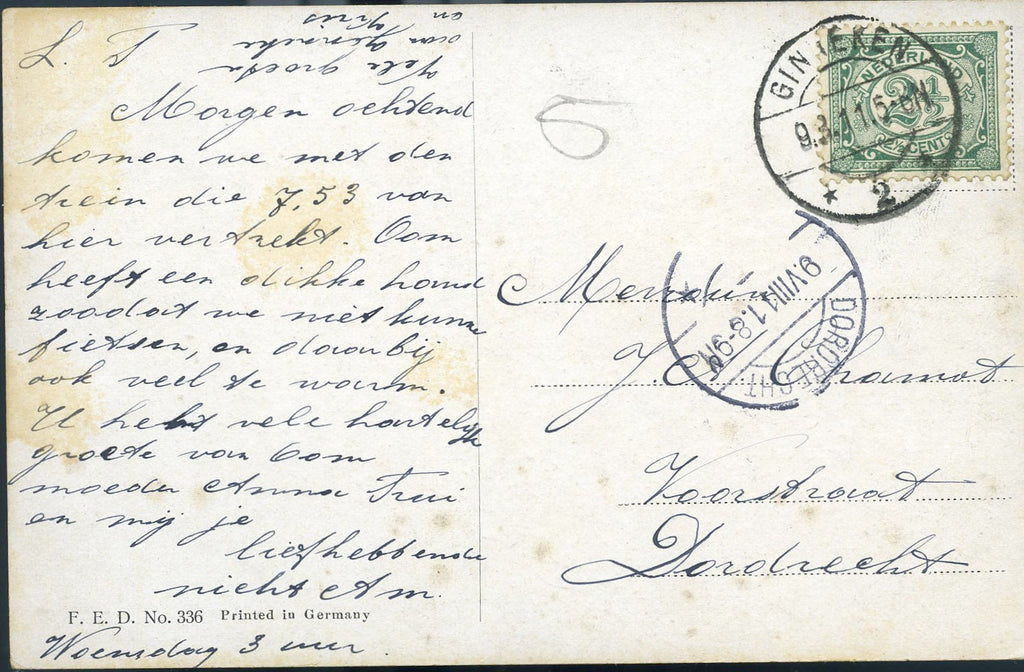 L. T
Morgen ochtend
komen we met den
trein die 7,53 van
hier vertrekt. Oom
heeft een dikke hand
zoodat we niet kunne
fietsen, en daarbij
ook veel te warm.
U hebt vele hartelijke
groete van Oom
moeder Anna Trui
en mij je
liefhebbende
nicht Am.
Woensdag 3 uur.
Vele groete
van
en
F. E. D. No. 336 Printed in Germany
GINNEKEN
9.8.11.5-6N
2
NEDERLAND
2½
2½ CENT
9.VIII.11.8-9N
DORDRECHT
J. Chamot
Voorstraat
Dordrecht